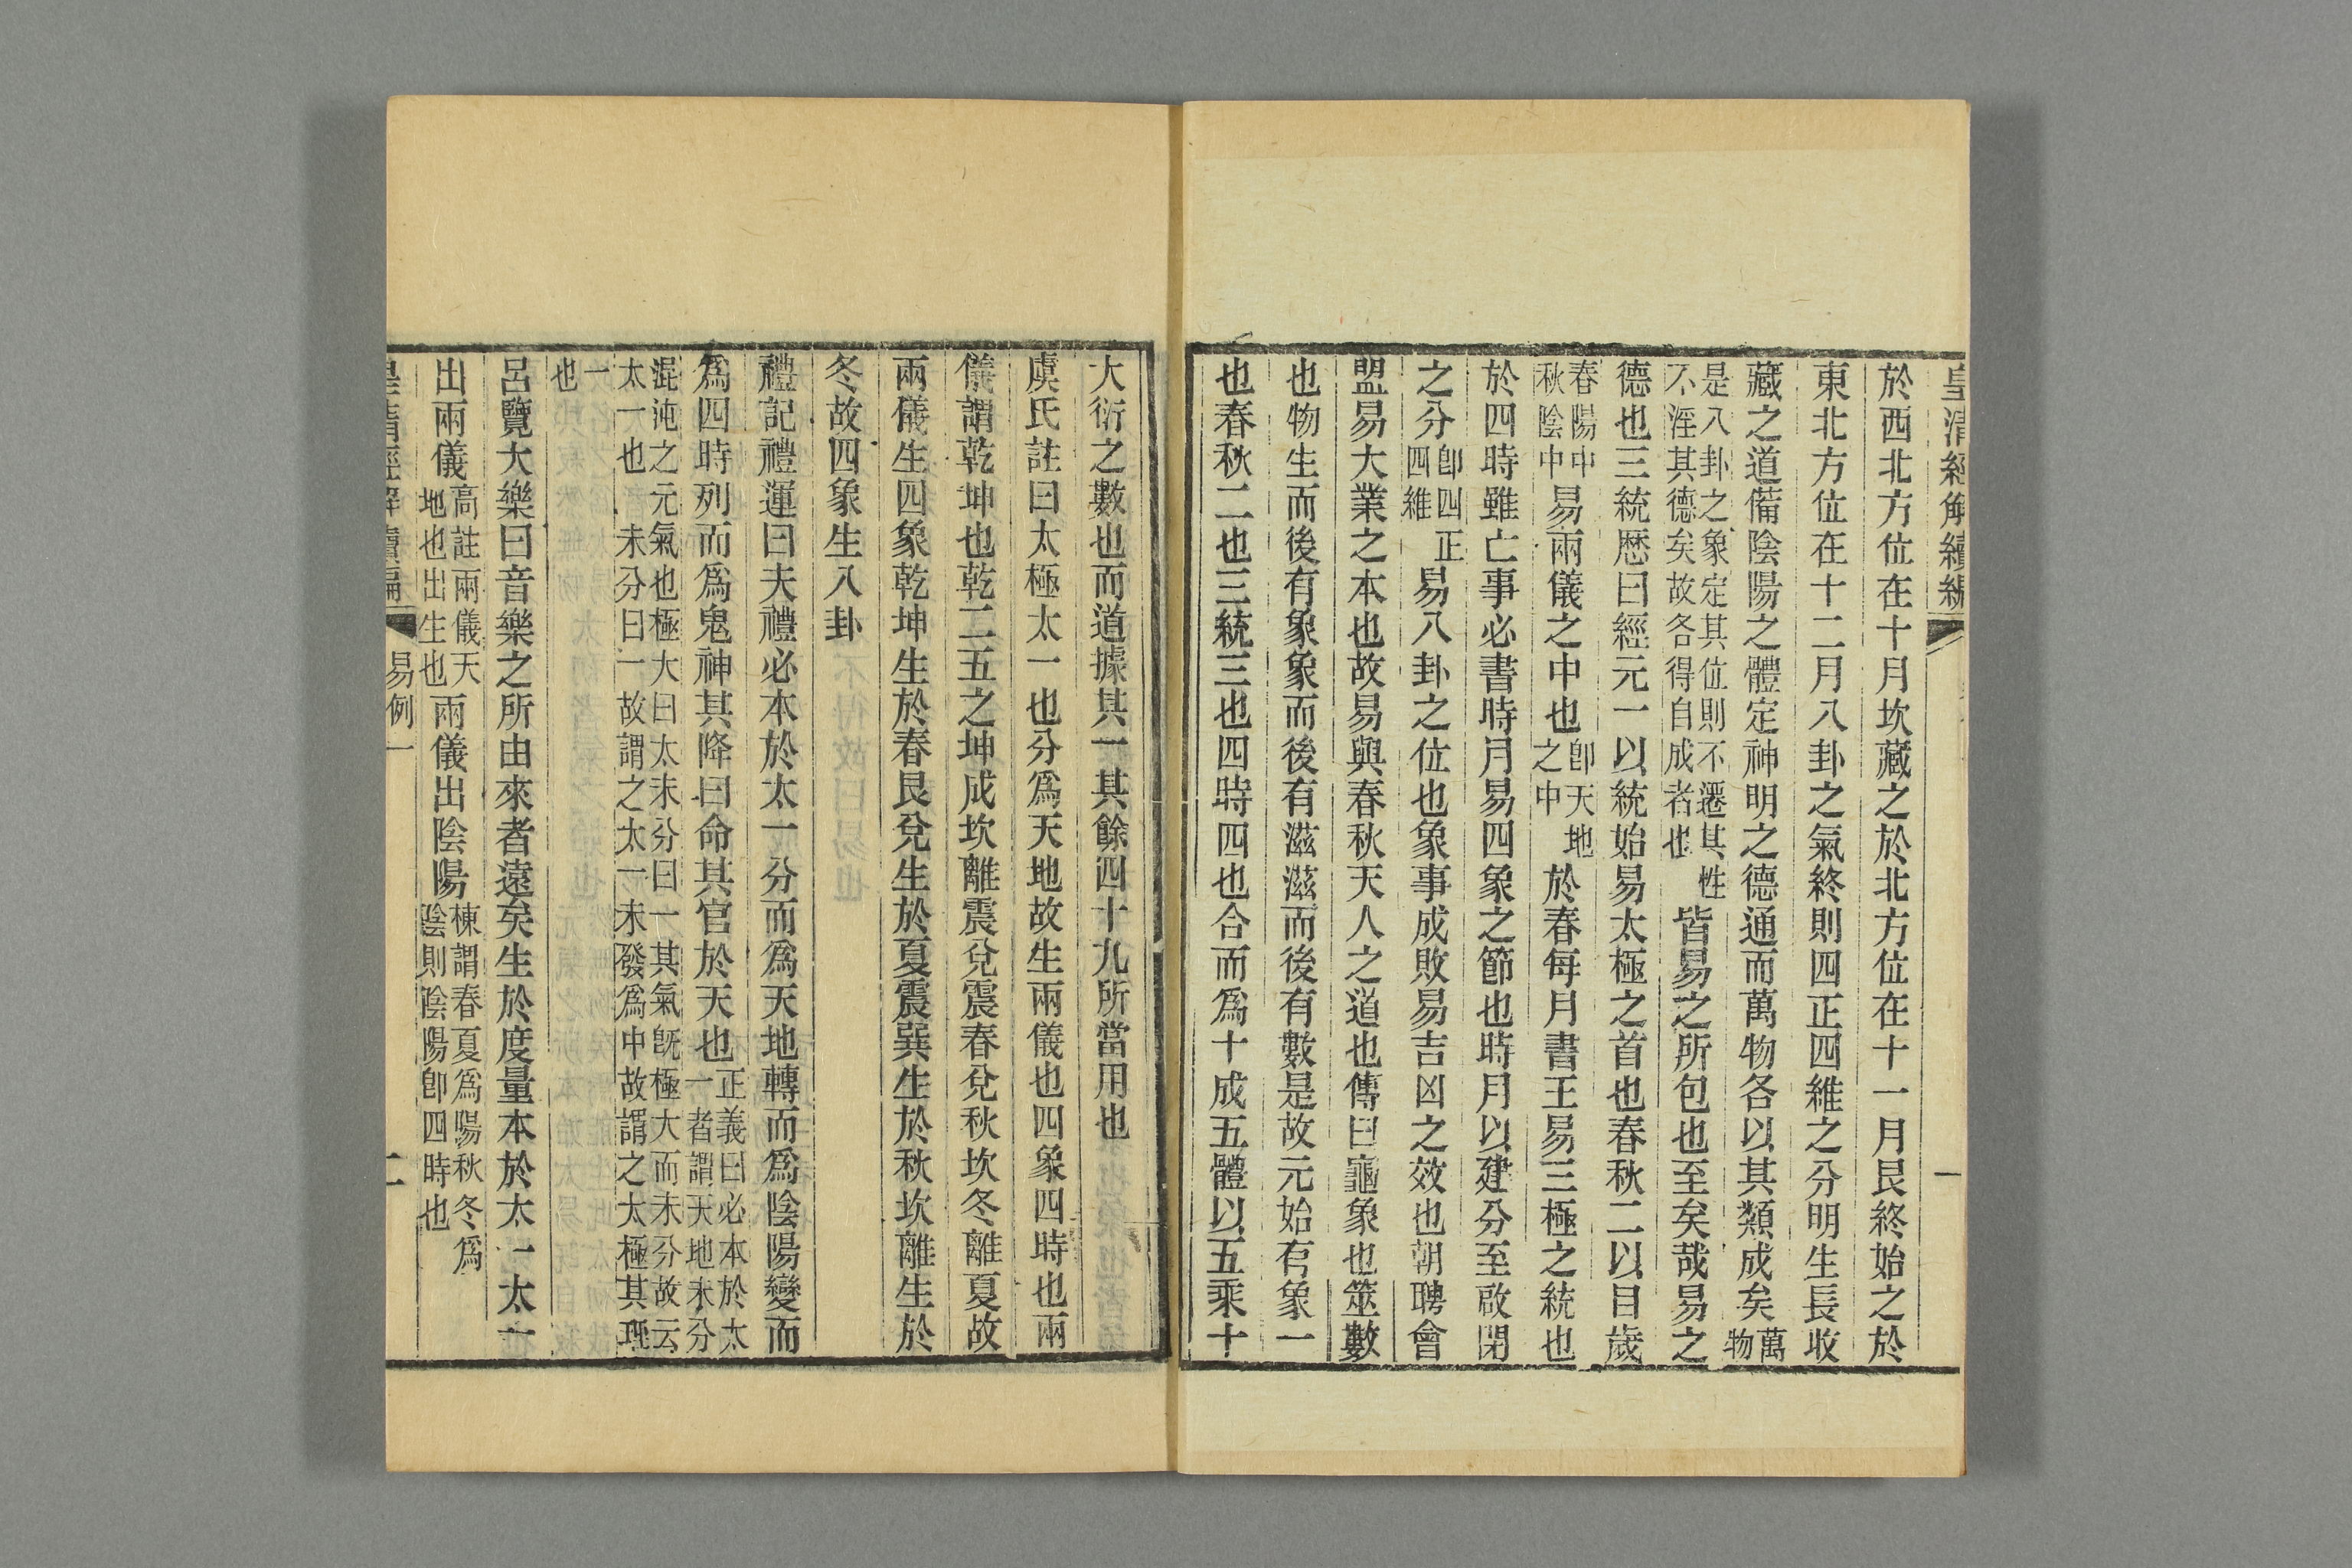 皇清經解續編
一
於西北方位在十月坎藏之於北方位在十一月艮終始之於
東北方位在十二月八卦之氣終則四正四維之分明生長收
藏之道備陰陽之體定神明之德通而萬物各以其類成矣萬
物
是八卦之象定其位則不遷其性
不淫其德矣故各得自成者也
皆易之所包也至矣哉易之
德也三統厯曰經元一以統始易太極之首也春秋二以目歲
春陽中
秋陰中
易兩儀之中也
卽天地
之中
於春每月書王易三極之統也
於四時雖亡事必書時月易四象之節也時月以建分至啟閉
之分
卽四正
四維
易八卦之位也象事成敗易吉凶之效也朝聘會
盟易大業之本也故易與春秋天人之道也傳曰龜象也筮數
也物生而後有象象而後有滋滋而後有數是故元始有象一
也春秋二也三統三也四時四也合而爲十成五體以五乘十
大衍之數也而道據其一其餘四十九所當用也
虞氏註曰太極太一也分爲天地故生兩儀也四象四時也兩
儀謂乾坤也乾二五之坤成坎離震兌震春兌秋坎冬離夏故
兩儀生四象乾坤生於春艮兌生於夏震巽生於秋坎離生於
冬故四象生八卦
禮記禮運曰夫禮必本於太一分而爲天地轉而爲陰陽變而
爲四時列而爲鬼神其降曰命其官於天也
正義曰必本於太
一者謂天地未分
混沌之元氣也極大曰太未分曰一其氣旣極大而未分故云
太一也未分曰一故謂之太一未發爲中故謂之太極其理
一
也
呂覽大樂曰音樂之所由來者遠矣生於度量本於太一太一
出兩儀
高註兩儀天
地也出生也
兩儀出陰陽
棟謂春夏爲陽秋冬爲
陰則陰陽卽四時也
皇清經解續編
易例一
二